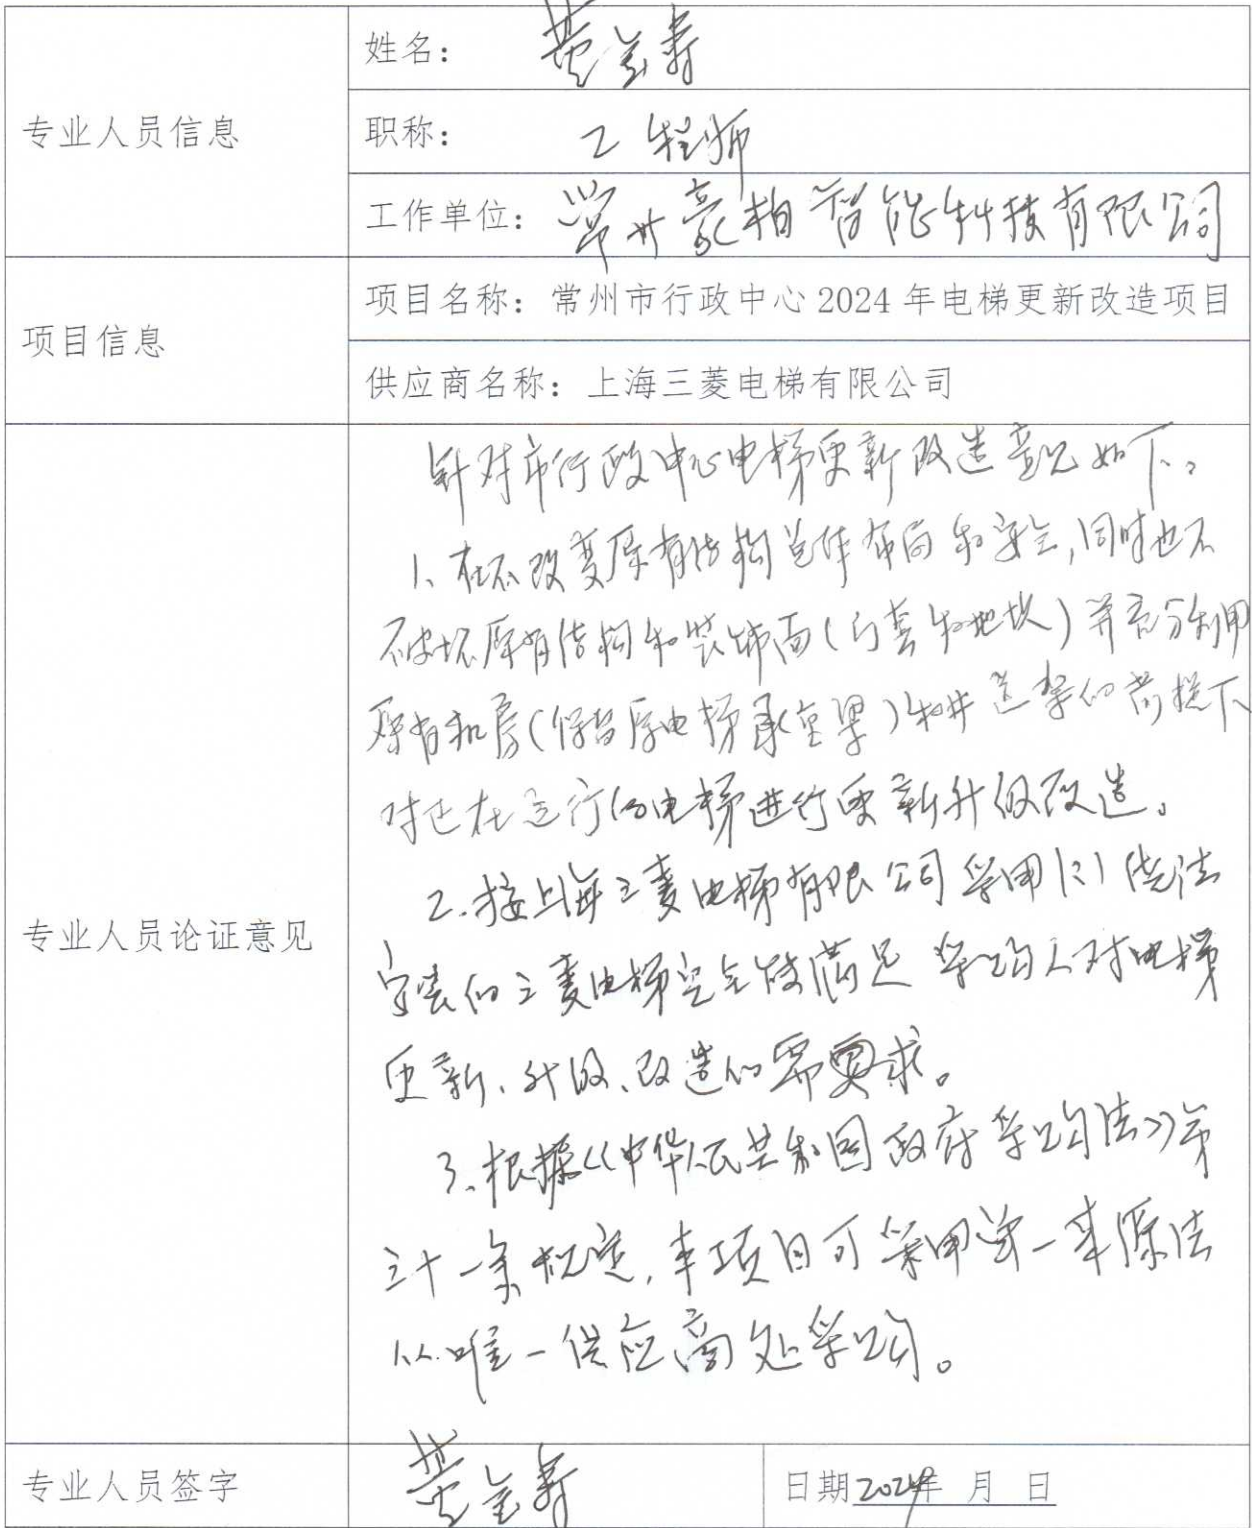 姓名：黄金寿
专业人员信息
职称：工程师
工作单位：常州豪柏智能科技有限公司
项目名称：常州市行政中心2024年电梯更新改造项目
项目信息
供应商名称：上海三菱电梯有限公司
针对市行政中心电梯更新改造意见如下：
1、在不改变原有结构总体布局和安全，同时也不
破坏原有结构和装饰面（门套和地坎）并充分利用
原有机房（保留原电梯承重梁）和井道等的前提下
对正在运行的电梯进行更新升级改造。
2、接上海三菱电梯有限公司采用 绕法
的三菱电梯完全能满足采购人对电梯
更新、升级、改造的需要求。
专业人员论证意见
3、根据《中华人民共和国政府采购法》第
三十一条规定，本项目可采用单一来源法
从唯一供应商处采购。
专业人员签字 黄金寿 日期2024年 月 日